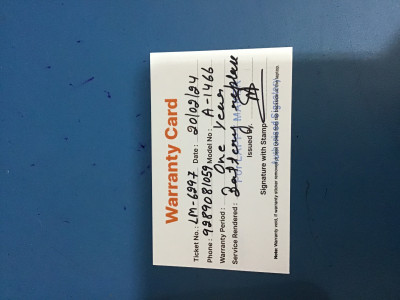 Warranty Card
Ticket No.: LM-6297 Date: 20/02/24
Phone: 9289081059 Model No: A-1466
Warranty Period: One year
Service Rendered: Battery replace
Issued by
Signature with Stamp
Note: Warranty void, if warranty sticker removed